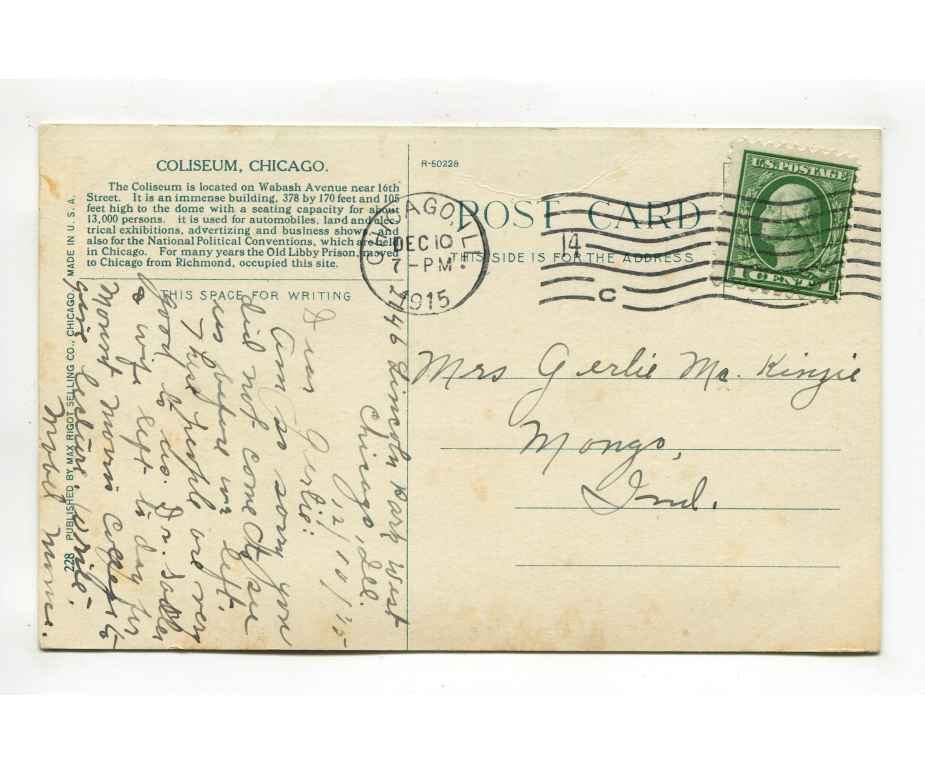 COLISEUM, CHICAGO.
The Coliseum is located on Wabash Avenue near 16th
Street. It is an immense building, 378 by 170 feet and 105
feet high to the dome with a seating capacity for about
13,000 persons. it is used for automobiles, land and elec-
trical exhibitions, advertizing and business shows, and
also for the National Political Conventions, which are held
in Chicago. For many years the Old Libby Prison, moved
to Chicago from Richmond, occupied this site.
THIS SPACE FOR WRITING
228 PUBLISHED BY MAX RIGOT SELLING CO., CHICAGO MADE IN U.S.A.
R-50228
POST CARD
THIS SIDE IS FOR THE ADDRESS
CHICAGO, ILL.
DEC 10
7-PM
1915
14
C
U.S. POSTAGE
1 CENT 1
Mrs Gerlie Mc. Kinzie
Mongo,
Ind.
2146 Lincoln Park West
Chicago, Ill.
12/10/15
Dear Gerlie:
Am so sorry you
did not come to see
us before we left.
These people are very
good to us. Dr.
& wife left to day for
Mount Morris College
Give Write